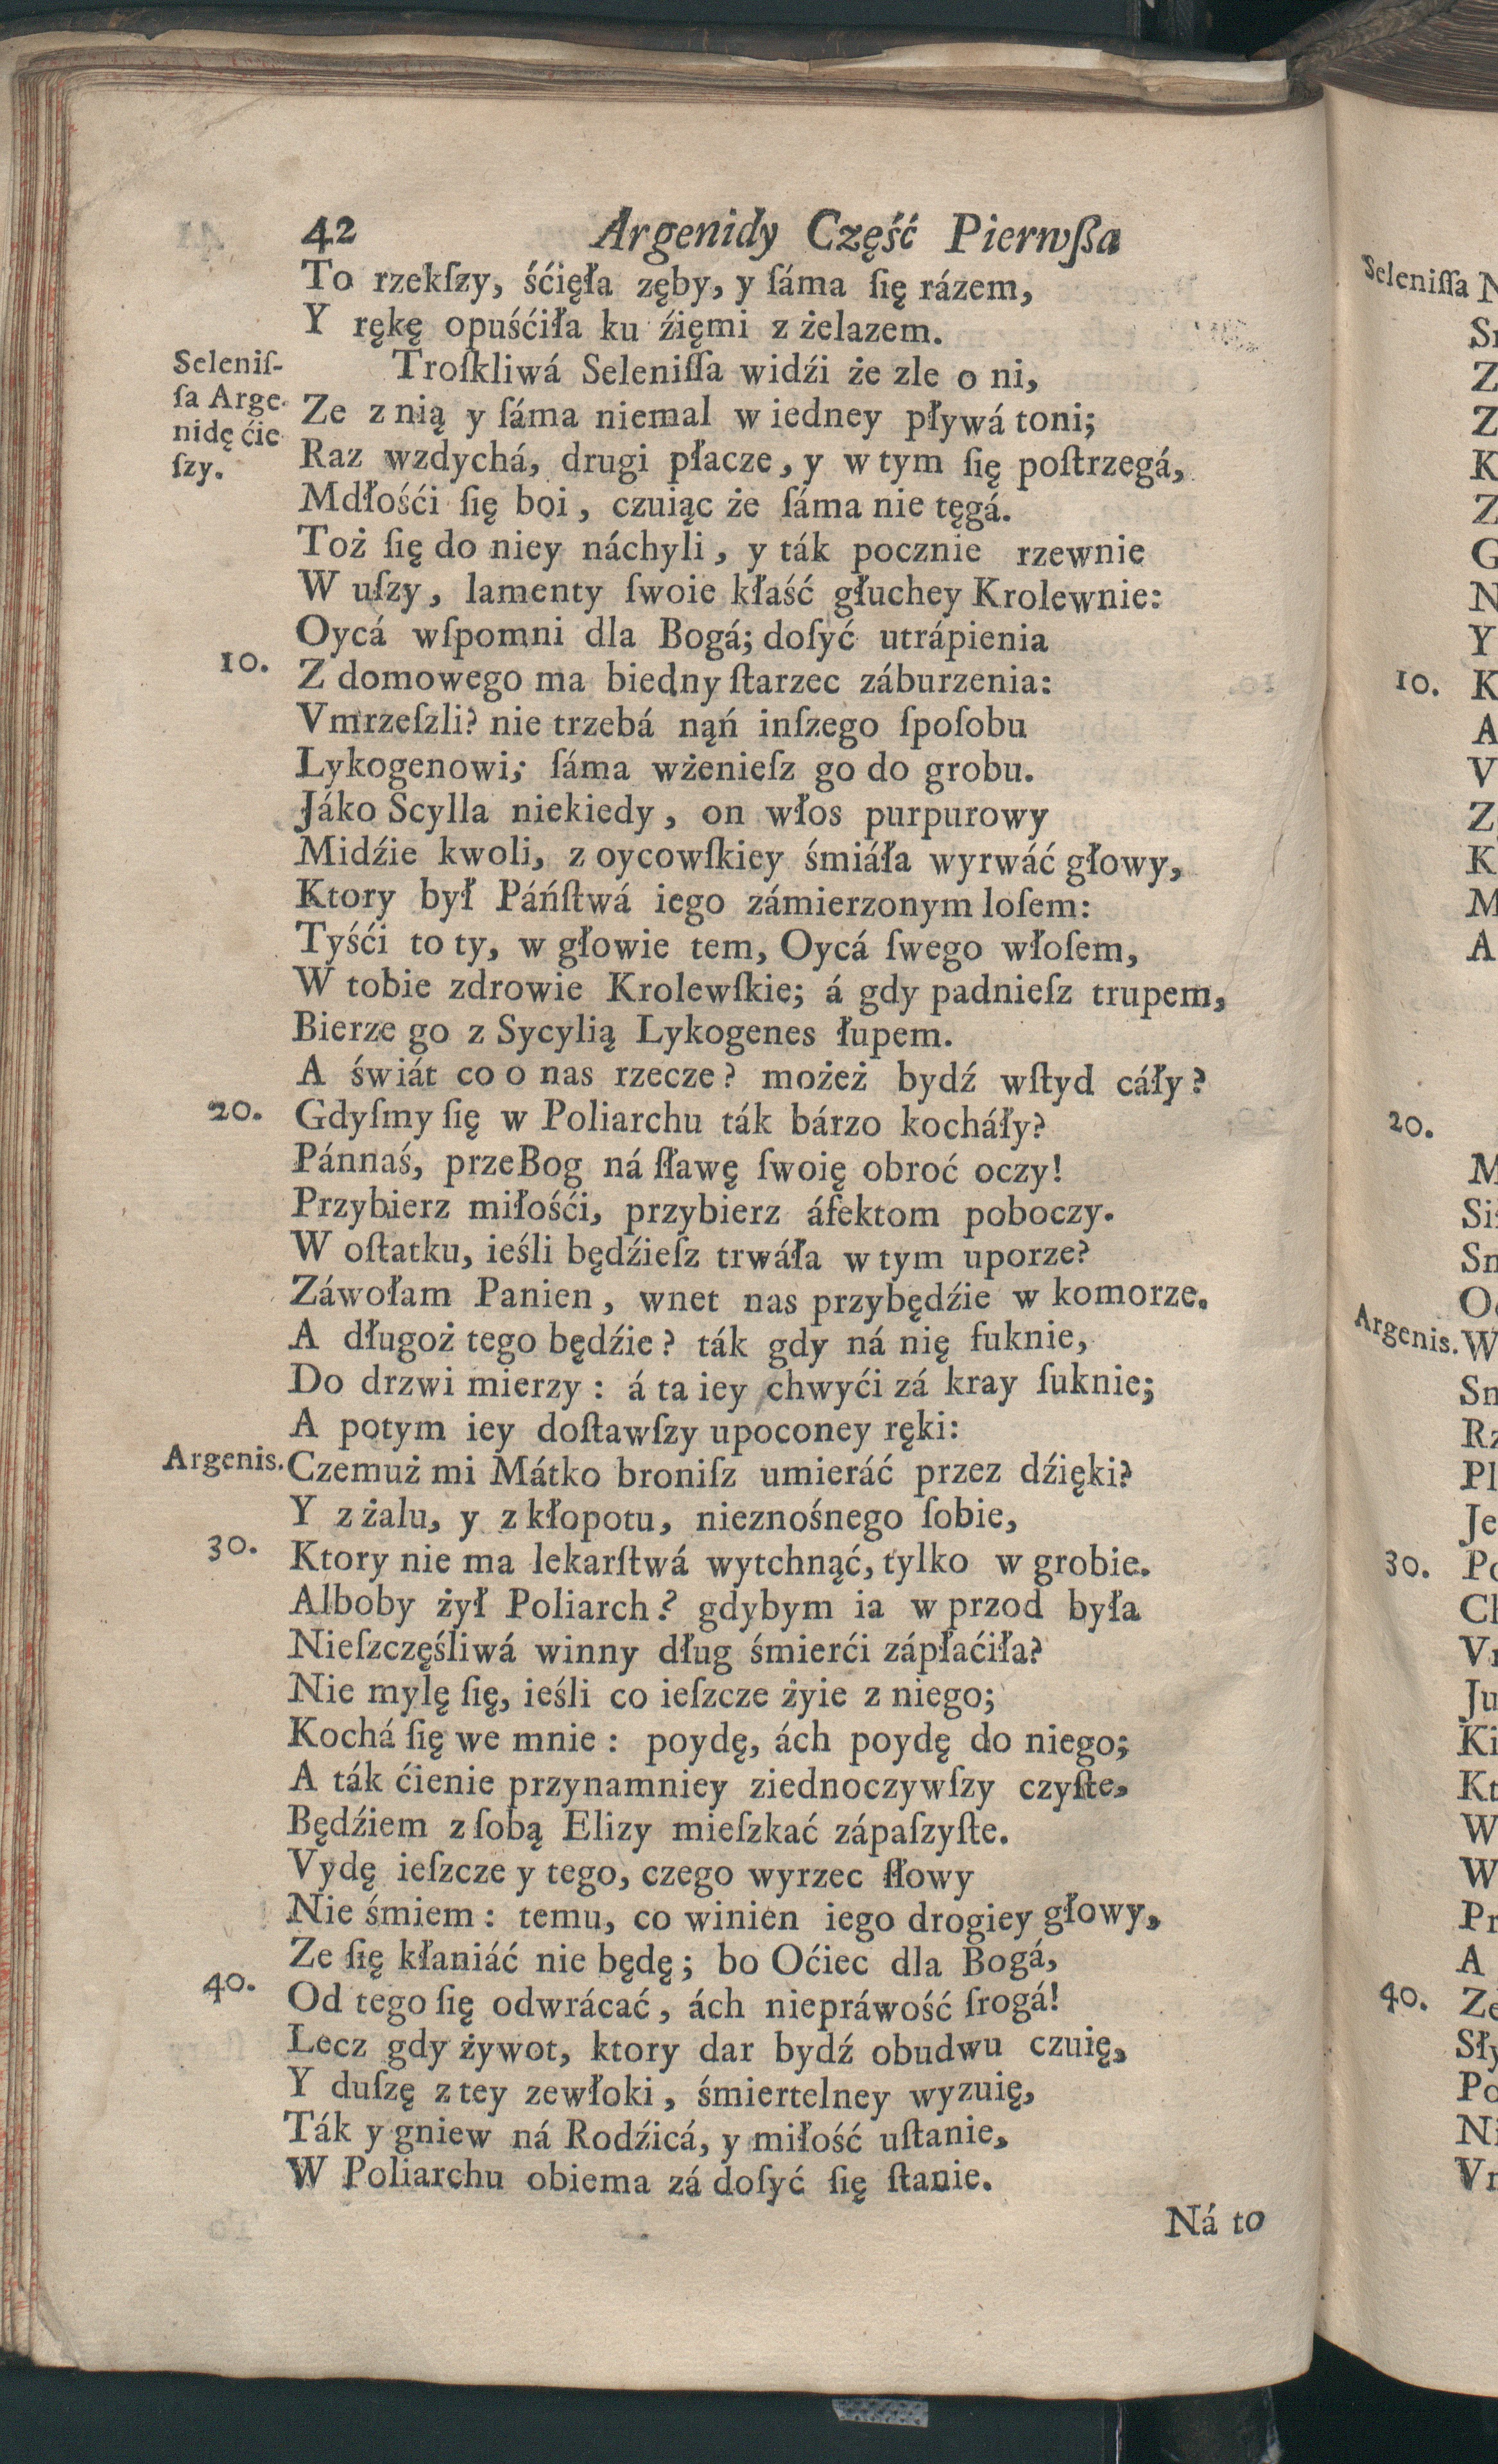 42 Argenidy Część Pierwßa
To rzekſzy, śćięła zęby, y ſáma ſię rázem,
Y rękę opuśćiła ku źięmi z żelazem.
Seleniſ-
ſa Arge-
nidę ćie
ſzy.
Troſkliwá Seleniſſa widźi że zle o ni,
Ze z nią y ſáma niemal w iedney pływá toni;
Raz wzdychá, drugi płacze, y w tym ſię poſtrzegá,
Mdłośći ſię boi, czuiąc że ſáma nie tęgá.
Toż ſię do niey náchyli, y ták pocznie rzewnie
W uſzy, lamenty ſwoie kłaść głuchey Krolewnie:
Oycá wſpomni dla Bogá; doſyć utrápienia
10. Z domowego ma biedny ſtarzec záburzenia:
Vmrzeſzli? nie trzebá nąń inſzego ſpoſobu
Lykogenowi; ſáma wżenieſz go do grobu.
Jáko Scylla niekiedy, on włos purpurowy
Midźie kwoli, z oycowſkiey śmiáła wyrwáć głowy,
Ktory był Páńſtwá iego zámierzonym loſem:
Tyśći to ty, w głowie tem, Oycá ſwego włoſem,
W tobie zdrowie Krolewſkie; á gdy padnieſz trupem,
Bierze go z Sycylią Lykogenes łupem.
A świát co o nas rzecze? możeż bydź wſtyd cáły?
20. Gdyſmy ſię w Poliarchu ták bárzo kocháły?
Pánnaś, przeBog ná ſławę ſwoię obroć oczy!
Przybierz miłośći, przybierz áfektom poboczy.
W oſtatku, ieśli będźieſz trwáła w tym uporze?
Záwołam Panien, wnet nas przybędźie w komorze.
A długoż tego będźie? ták gdy ná nię fuknie,
Do drzwi mierzy: á ta iey chwyći zá kray ſuknie;
A potym iey doſtawſzy upoconey ręki:
Argenis. Czemuż mi Mátko broniſz umieráć przez dźięki?
Y z żalu, y z kłopotu, nieznośnego ſobie,
30. Ktory nie ma lekarſtwá wytchnąć, tylko w grobie.
Alboby żył Poliarch? gdybym ia w przod była
Nieſzczęśliwá winny dług śmierći zápłaćiła?
Nie mylę ſię, ieśli co ieſzcze żyie z niego;
Kochá ſię we mnie: poydę, ách poydę do niego;
A ták ćienie przynamniey ziednoczywſzy czyſte,
Będźiem z ſobą Elizy mieſzkać zápaſzyſte.
Vydę ieſzcze y tego, czego wyrzec ſłowy
Nie śmiem: temu, co winien iego drogiey głowy,
Ze ſię kłaniáć nie będę; bo Oćiec dla Bogá,
40. Od tego ſię odwrácać, ách niepráwość ſrogá!
Lecz gdy żywot, ktory dar bydź obudwu czuię,
Y duſzę z tey zewłoki, śmiertelney wyzuię,
Ták y gniew ná Rodźicá, y miłość uſtanie,
W Poliarchu obiema zá doſyć ſię ſtanie.
Ná to
Seleniſſa
10.
20.
Argenis.
30.
40.